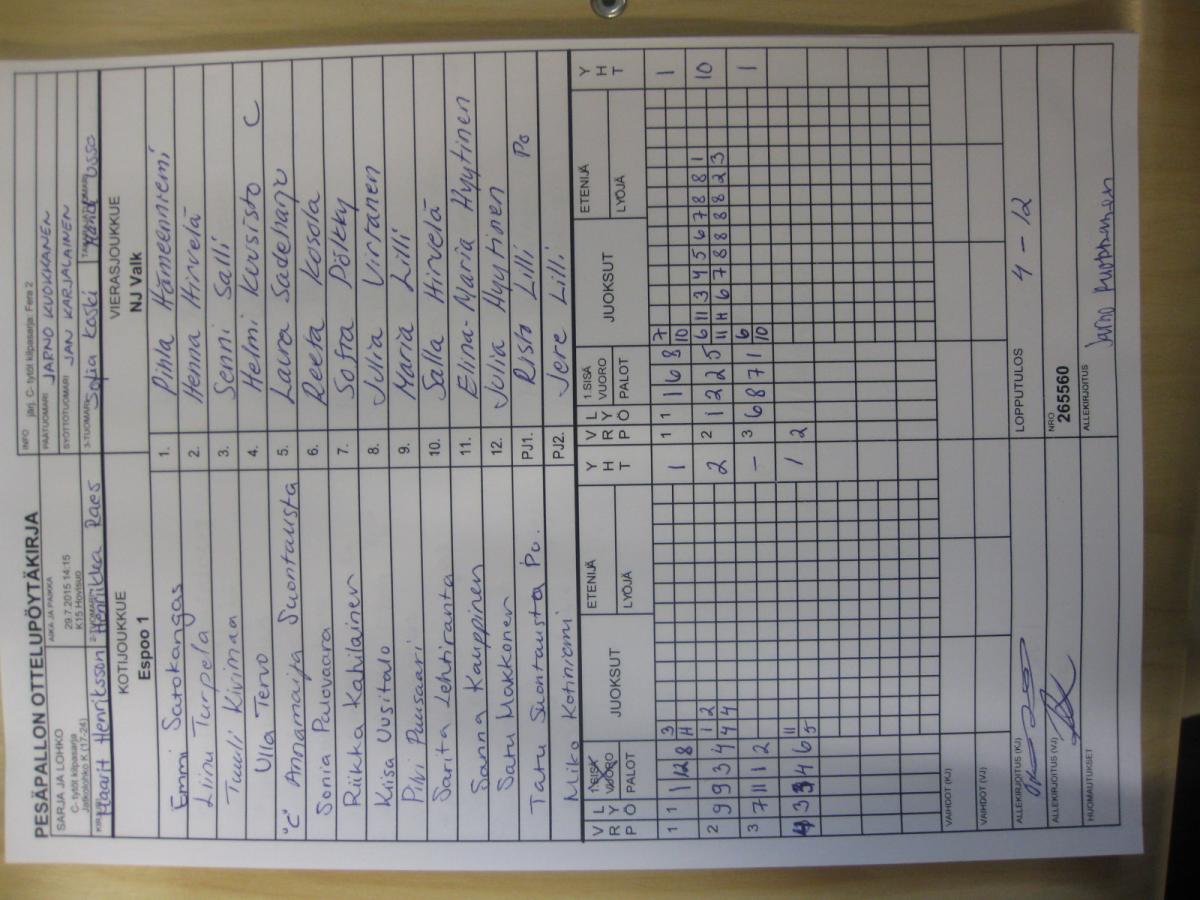 PESÄPALLON OTTELUPÖYTÄKIRJA
SARJA JA LOHKO
C- tytöt kilpasarja
Jatkolohko K (17-24)
AIKA JA PAIKKA
29.7.2015 14:15
K15 Hovisuo
INFO järj. C- tytöt kilpasarja: Fera 2
PÄÄTUOMARI JARNO KUOKKANEN
SYÖTTÖTUOMARI JAN KARJALAINEN
Maarit Henriksson
2-TUOMARI Henriikka Raes
3-TUOMARI Sofia Koski
KOTIJOUKKUE
Espoo 1
VIERASJOUKKUE
NJ Valk
Emmi Satokangas 1. Pihla Hämeenniemi
Liinu Turpela 2. Henna Hirvelä
Tuuli Kivimaa 3. Senni Salli
Ulla Tervo 4. Helmi Kuusisto C
"C" Annamaija Suontausta 5. Laura Sadeharju
Sonia Palovaara 6. Reeta Kosola
Riikka Kahilainen 7. Sofia Pölkky
Kiisa Uusitalo 8. Julia Virtanen
Pilvi Puusaari 9. Maria Lilli
Sarita Lehtiranta 10. Salla Hirvelä
Sanna Kauppinen 11. Elina-Maria Hyytinen
Satu Makkonen 12. Julia Hyytinen
Tatu Suontausta Pv. PJ1. Risto Lilli Po
Miko Kotiniemi PJ2. Jere Lilli
V R P L Y Ö 1.SISÄ VUORO PALOT JUOKSUT ETENIJÄ LYÖJÄ Y H T V R P L Y Ö 1.SISÄ VUORO PALOT JUOKSUT ETENIJÄ LYÖJÄ Y H T
1 1 1 12 8 3 1 1 1 1 6 8 7 1
11 10
2 9 9 3 4 1 2 2 2 1 2 2 5 6 11 3 4 5 6 7 8 8 1 10
4 4 11 11 6 7 8 8 8 8 2 3
3 7 11 1 2 - 3 6 8 7 1 6 1
10
4 3 3 4 6 11 1 2
5
VAIHDOT (KJ)
VAIHDOT (VJ)
ALLEKIRJOITUS (KJ)
LOPPUTULOS 4 - 12
ALLEKIRJOITUS (VJ)
NRO
265560
HUOMAUTUKSET
ALLEKIRJOITUS